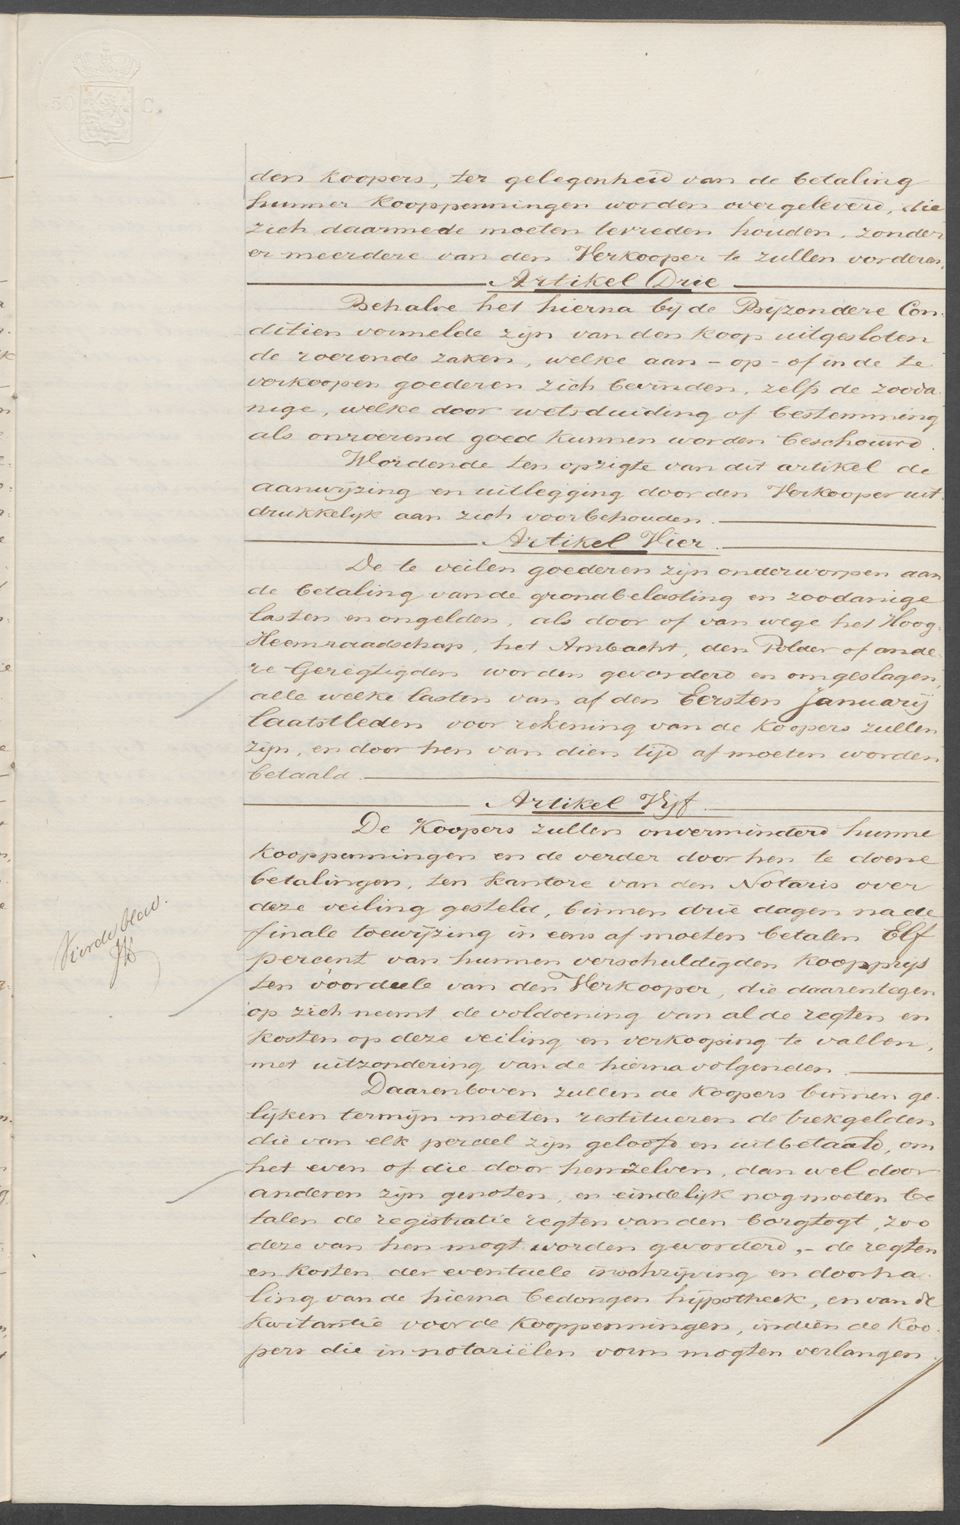 50 C.
den koopers, ter gelegenheid van de betaling
hunner kooppenningen worden overgeleverd, die
zich daarmede moeten tevreden houden, zonder
er meerdere van den Verkooper te zullen vorderen.
Artikel Drie
Behalve het hierna bij de Bijzondere Con-
ditien vermelde zijn van den koop uitgesloten
de roerende zaken, welke aan - op - of in de te
verkoopen goederen zich bevinden, zelfs de zooda-
nige, welke door wetsduiding of bestemming
als onroerend goed kunnen worden beschouwd.
Wordende ten opzigte van dit artikel de
aanwijzing en uitlegging door den Verkooper uit-
drukkelijk aan zich voorbehouden.
Artikel Vier.
De te veilen goederen zijn onderworpen aan
de betaling van de grondbelasting en zoodanige
lasten en ongelden, als door of van wege het Hoog-
Heemraadschap, het Ambacht, den Polder of ande-
re Geregtigden worden gevorderd en omgeslagen,
alle welke lasten van af den Eersten Januarij
laatstleden voor rekening van de koopers zullen
zijn, en door hen van dien tijd af moeten worden
betaald.
Artikel Vijf.
De Koopers zullen onverminderd hunne
kooppenningen en de verder door hen te doene
betalingen, ten kantore van den Notaris over
deze veiling gesteld, binnen drie dagen na de
finale toewijzing in eens af moeten betalen Elf
percent van hunnen verschuldigden koopprijs
ten voordeele van den Verkooper, die daarentegen
op zich neemt de voldoening van al de regten en
kosten op deze veiling en verkooping te vallen,
met uitzondering van de hierna volgenden.
Vierde blad.
Daarenboven zullen de koopers binnen ge-
lijken termijn moeten restitueren de trekgelden
die van elk perceel zijn geloofd en uitbetaald, om
het even of die door henzelven, dan wel door
anderen zijn genoten, en eindelijk nog moeten be-
talen de registratie regten van den borgtogt, zoo
deze van hen mogt worden gevorderd, - de regten
en kosten der eventuele inschrijving en doorha-
ling van de hierna bedongen hijpotheek, en van de
kwitantie voor de kooppenningen, indien de koo-
pers die in notariëlen vorm mogten verlangen.